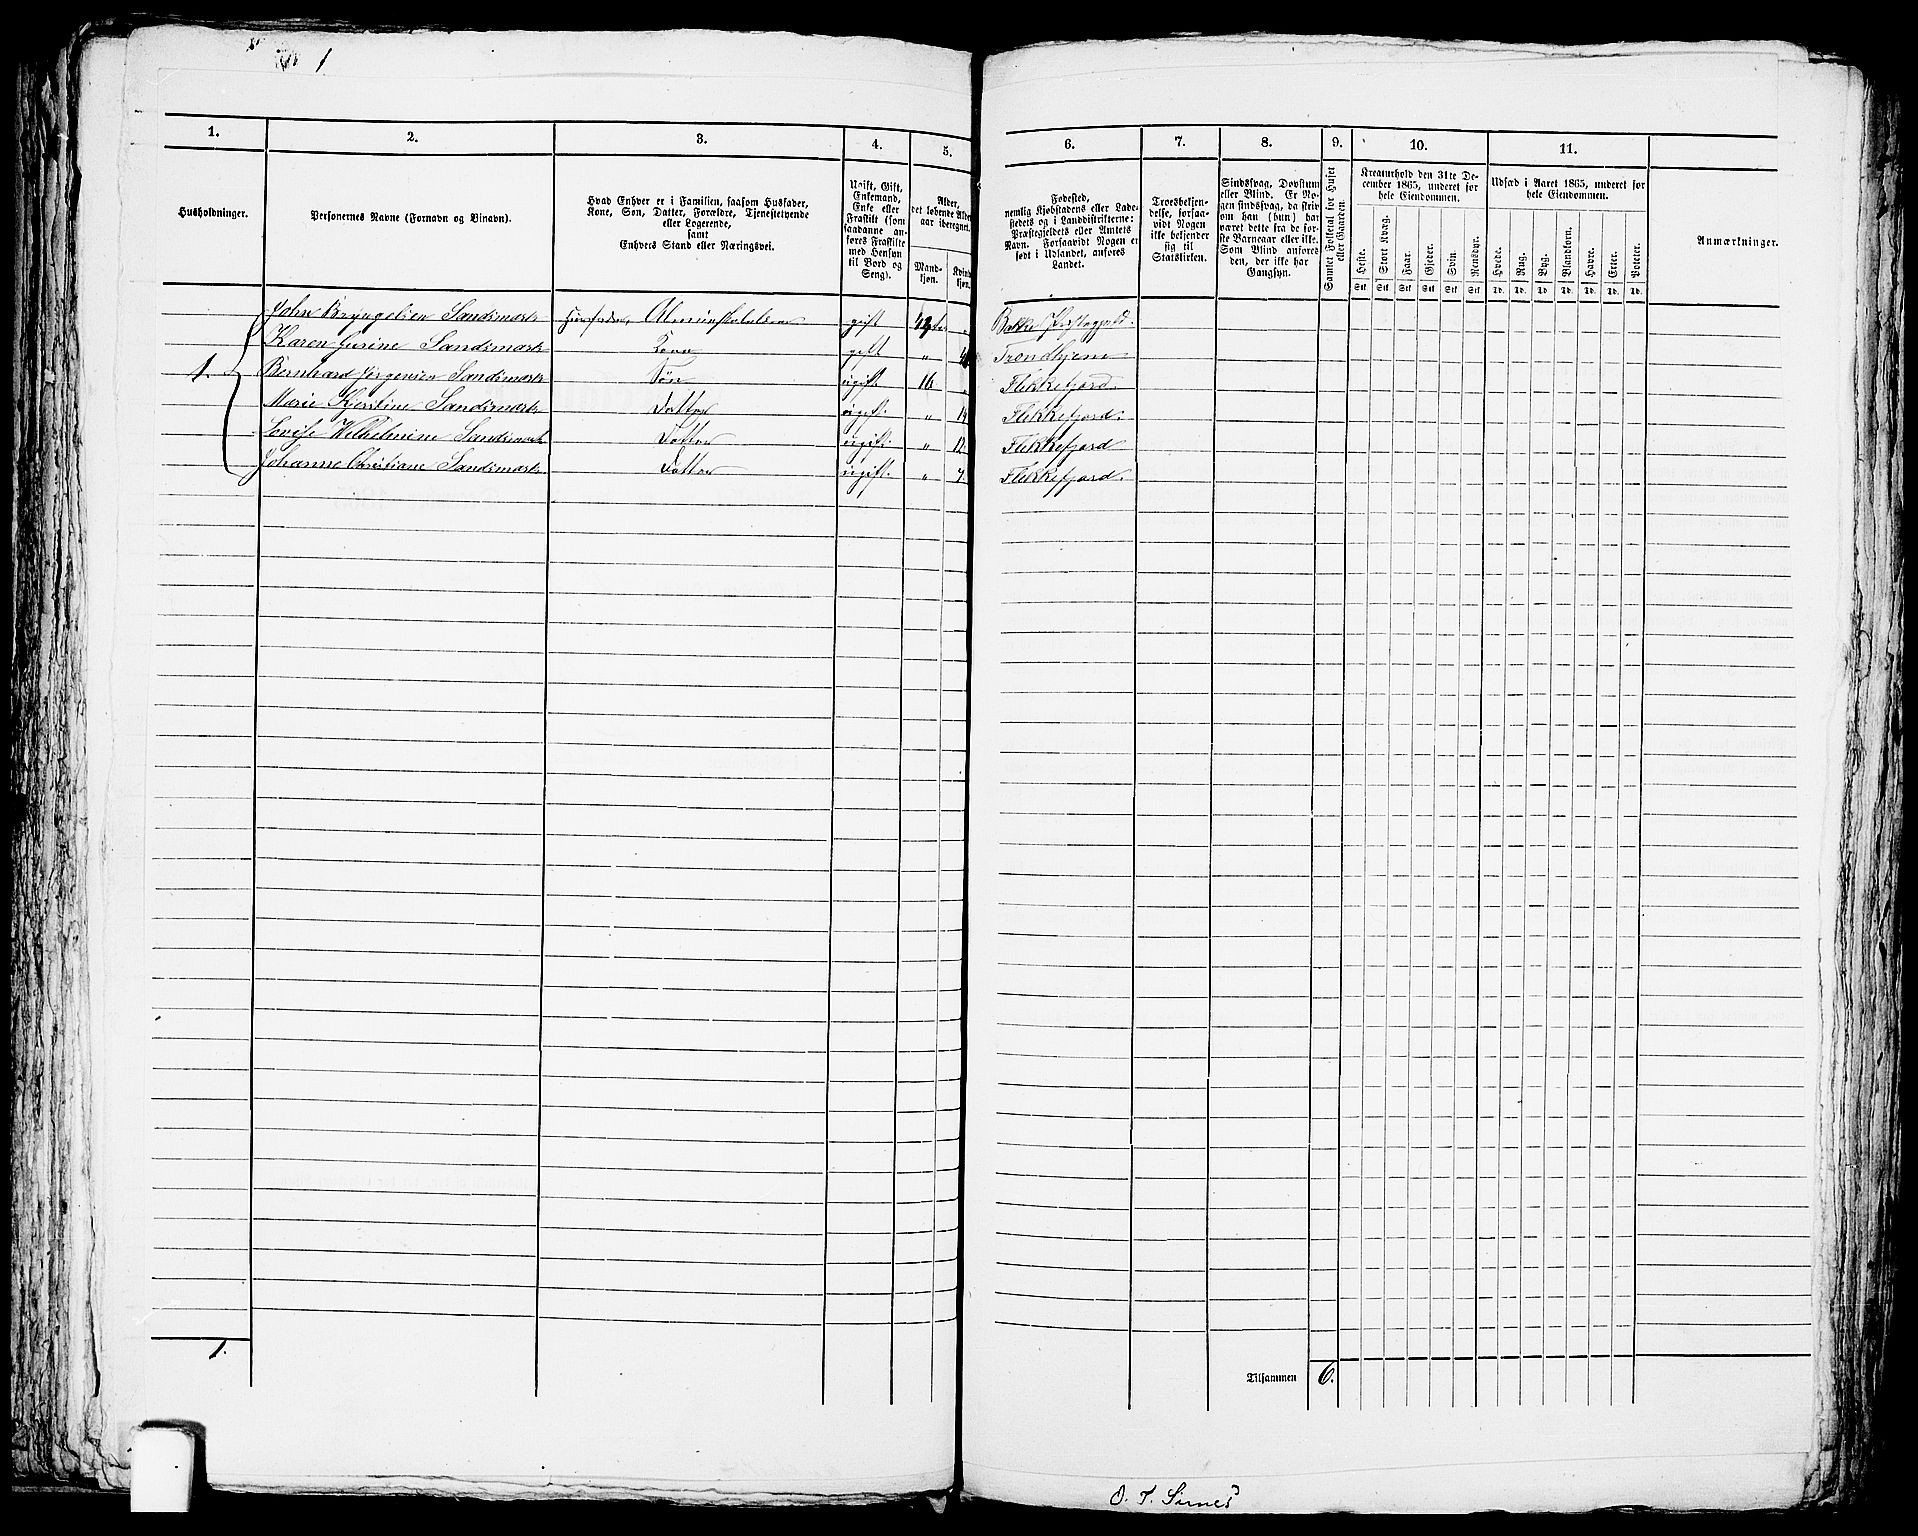 1
1.
2.
3.
4.
5.
6.
7.
8.
9.
10.
11.
Husholdninger.
Personernes Navne (Fornavn og Binavn).
Hvad Enhver er i Familien, saasom Husfader,
Kone, Søn, Datter, Forældre, Tjenestetyende
eller Logerende,
samt
Enhvers Stand eller Næringsvei.
Ugift, Gift,
Enkemand,
Enke eller
Fraskilt (som
saadanne an-
føres Fraskilte
med Hensyn
til Bord og
Seng).
Alder,
det løbende Alders-
aar iberegnet.
Mand-
kjøn.
Kvind-
kjøn.
Fødested,
nemlig Kjøbstadens eller Lade-
stedets og i Landdistrikterne:
Præstegjeldets eller Amtets
Navn. Forsaavidt Nogen er
født i Udlandet, anføres
Landet.
Troesbekjen-
delse, forsaa-
vidt Nogen
ikke bekjender
sig til
Statskirken.
Sindssvag, Døvstum
eller Blind. Er No-
gen sindssvag, da skriv
om han (hun) har
været dette fra de før-
ste Barneaar eller ikke.
Som Blind anføres
den, der ikke har
Gangsyn.
Samlet Folketal for Huset
eller Gaarden.
Kreaturhold den 31te De-
cember 1865, underet for
hele Eiendommen.
Heste.
Stort Kvæg.
Faar.
Gjeder.
Svin.
Rensdyr.
Stk Stk Stk Stk Stk Stk
Udsæd i Aaret 1865, underet for
hele Eiendommen.
Hvede.
Rug.
Byg.
Blandkorn.
Havre.
Erter.
Poteter.
Td. Td. Td. Td. Td. Td. Td.
Anmærkninger.
John Bryngelsen Sandsmark Huusfader, gift Bakke Præstegjeld.
Karen Gurine Sandsmark Kone gift " Trondhjem
1. Bernhard Jørgensen Sandsmark Søn ugift. 16 Flekkefjord.
Marie Kjerstine Sandsmark Datter ugift. " 14 Flekkefjord.
Lovise Wilhelmine Sandsmark Datter ugift. " 12 Flekkefjord
Johanne Christiane Sandsmark Datter ugift. " 7. Flekkefjord.
1.
Tilsammen 6.